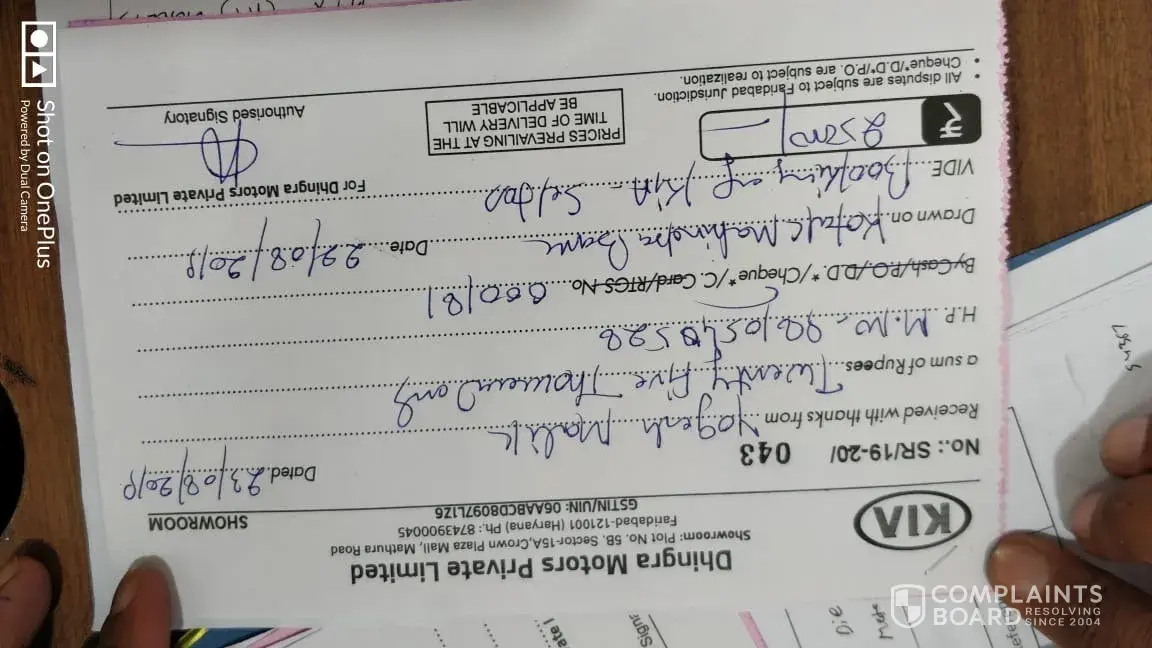 Dhingra Motors Private Limited
Showroom: Plot No. 5B, Sector-15A, Crown Plaza Mall, Mathura Road
Faridabad-121001 (Haryana) Ph.: 8743900045
GSTIN/UIN: 06AABCD8097L1Z6
KIA
SHOWROOM
No.: SR/19-20/ 043 Dated 23/08/2019
Received with thanks from Yogesh Malik
a sum of Rupees Twenty Five Thousand only
H.P. M.No -
By Cash/P.O./D.D.*/Cheque*/C. Card/RTGS No. 000181
Drawn on Kotak Mahindra Bank Date 22/08/2019
VIDE Booking of KIA - Seltos
For Dhingra Motors Private Limited
₹ 25000/-
PRICES PREVAILING AT THE
TIME OF DELIVERY WILL
BE APPLICABLE
Authorised Signatory
• All disputes are subject to Faridabad Jurisdiction.
• Cheque*/D.D*/P.O. are subject to realization.
Shot on OnePlus
Powered by Dual Camera
COMPLAINTS
BOARD RESOLVING
SINCE 2004